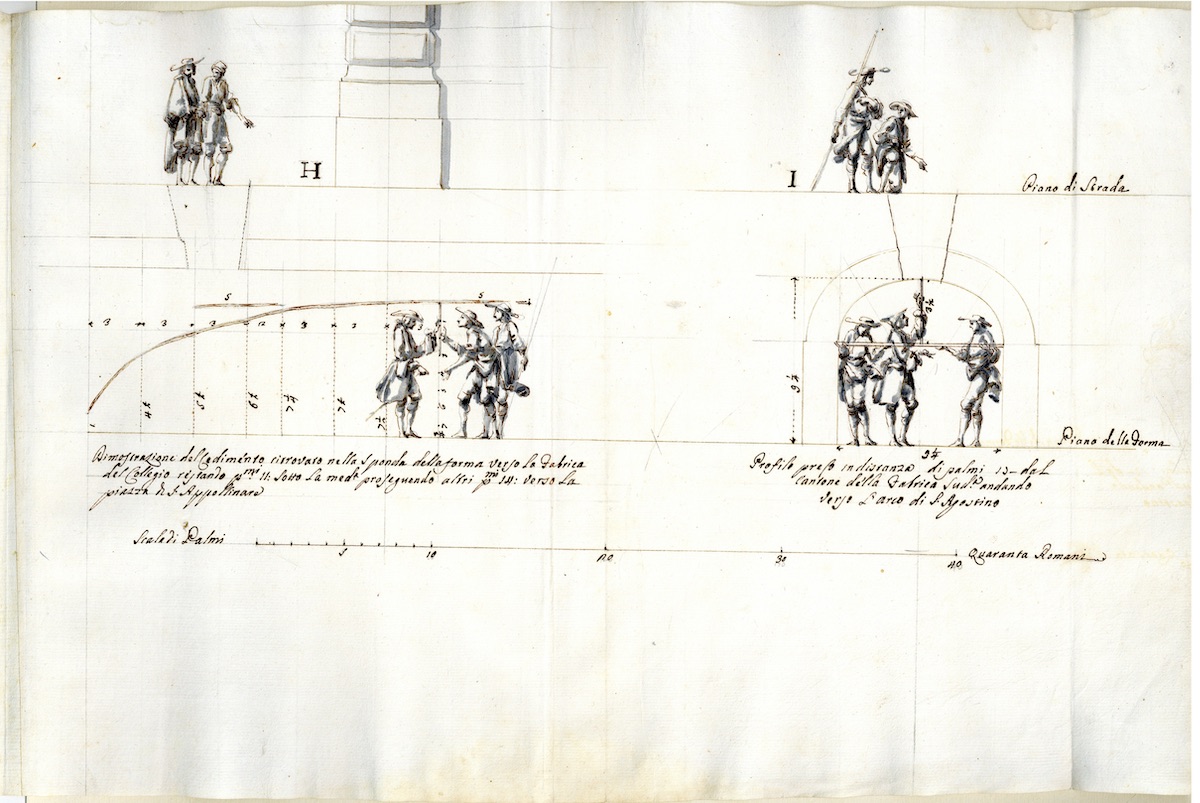 H
I
Piano di Strada
5
5
3 3 3 2 3 3 3
3 ½
9 ½
4 ½
5 ½
6 ½
7 ¼
7 ½
7 ½
Piano della Forma
9 ½
Dimostrazione del Cedimento ritrovato nella Sponda della forma verso La fabrica
del Collegio restando p.mi 11: sotto La med.a proseguendo altri p.mi 14: verso La
piazza di S. Appollinare
Profilo preso in distanza di palmi 13 - dal
Cantone della fabrica Sud.a andando
verso L'arco di S. Agostino
Scala di Palmi 5 10 20 30 40 Quaranta Romani